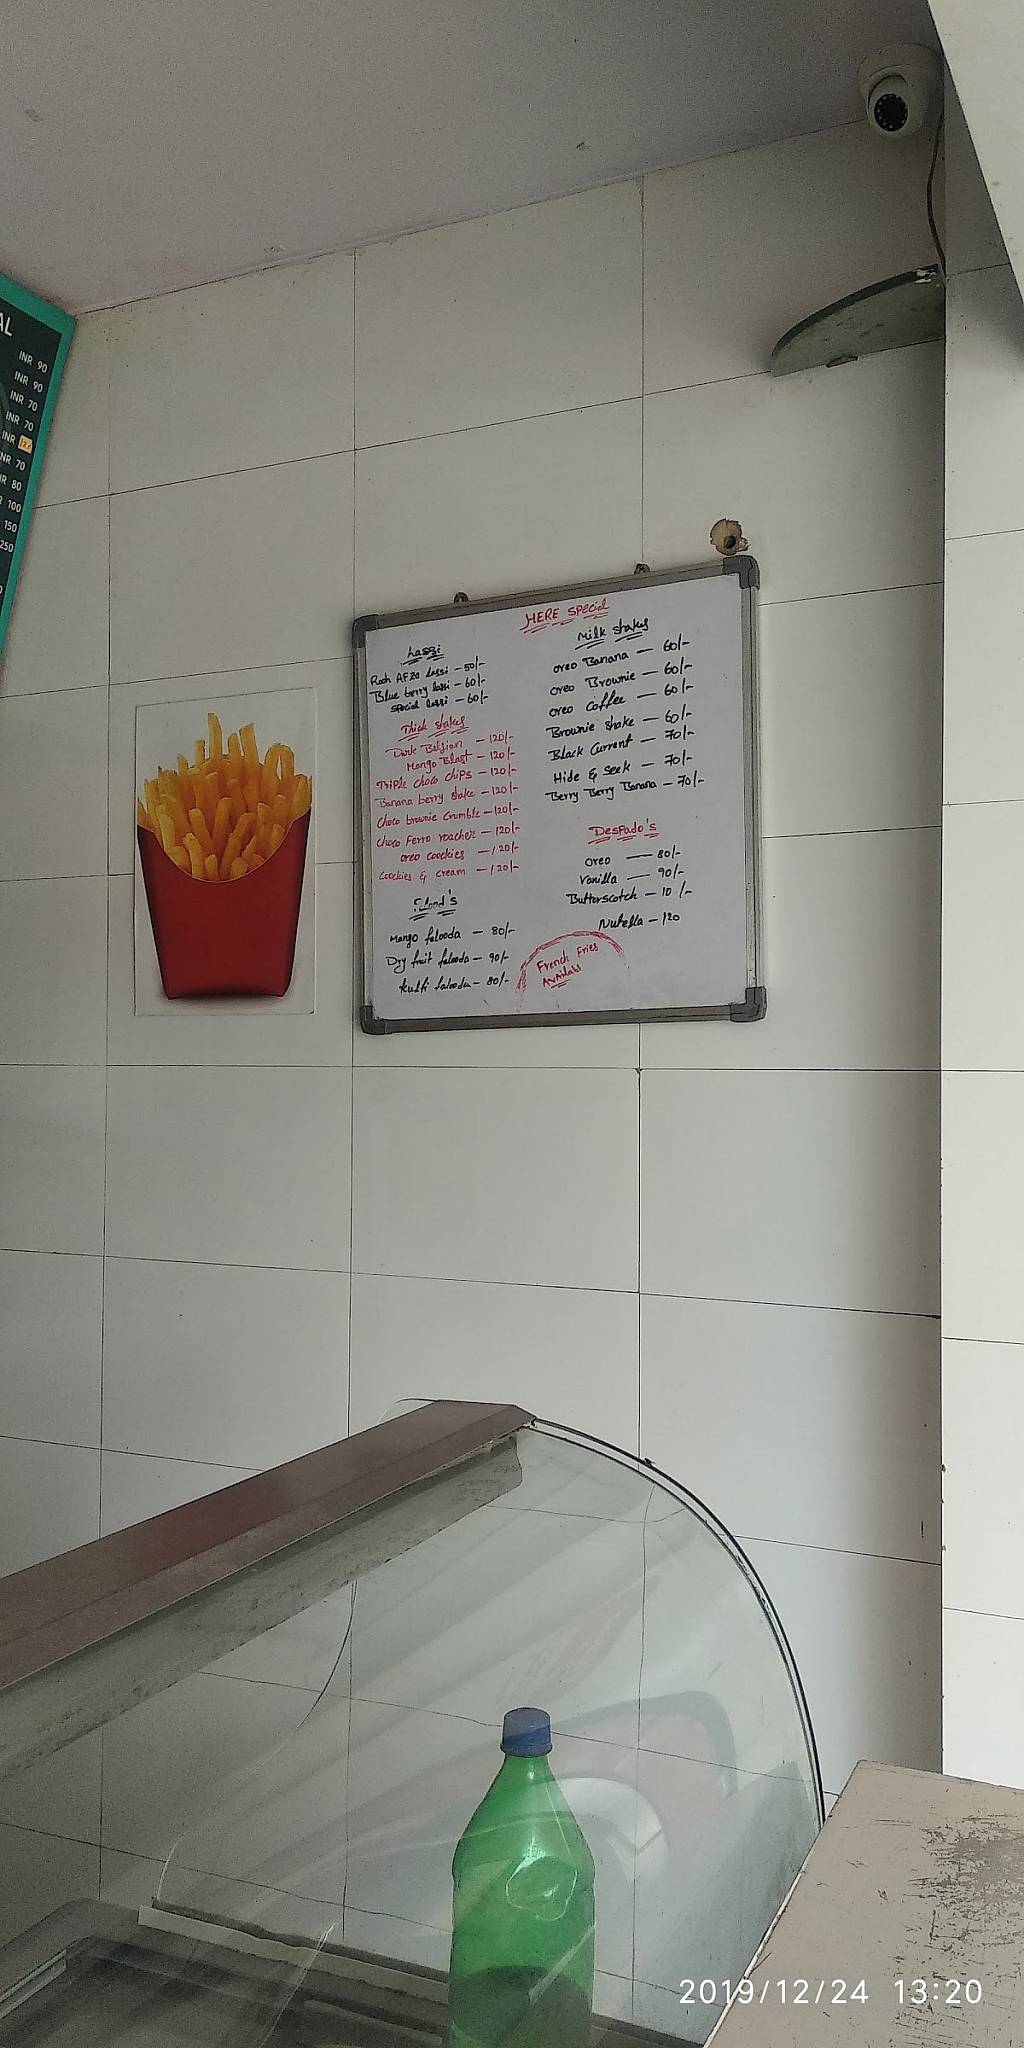 AL
INR 90
INR 90
INR 70
INR 70
INR
NR 70
R 80
100
150
250
HERE SPecial
Lassi
Rooh AFza Lassi - 50/-
Blue berry lassi - 60/-
Special lassi - 60/-
Thick shakes
Dark Belgian - 120/-
Mango Blast - 120/-
Triple choco chips - 120/-
Banana berry shake - 120/-
Choco brownie Crumble - 120/-
Choco Ferro rocher - 120/-
oreo coockies - 120/-
Coockies & cream - 120/-
Mango falooda - 80/-
Dry fruit falooda - 90/-
kulfi falooda - 80/-
Milk Shakes
oreo Banana - 60/-
oreo Brownie - 60/-
oreo Coffee - 60/-
Brownie Shake - 60/-
Black Current - 70/-
Hide & Seek - 70/-
Berry Berry Banana - 70/-
Despado's
oreo - 80/-
Vanilla - 90/-
Butterscotch - 10/-
Nutella - 120
French Fries
Available
2019/12/24 13:20